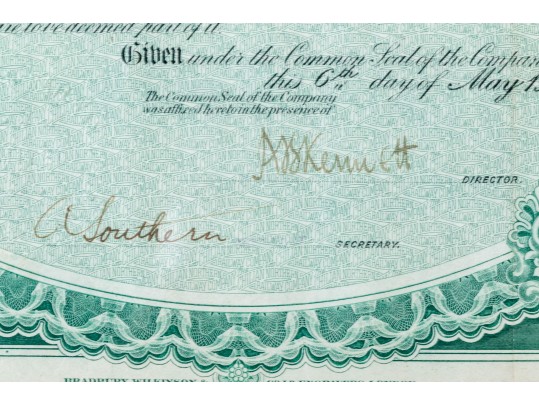 deemed part of it.
Given under the Common Seal of the Compan
this 6th day of May 1
The Common Seal of the Company
was affixed hereto in the presence of
A B Kennett
DIRECTOR.
A Southern
SECRETARY.
BRADBURY, WILKINSON &